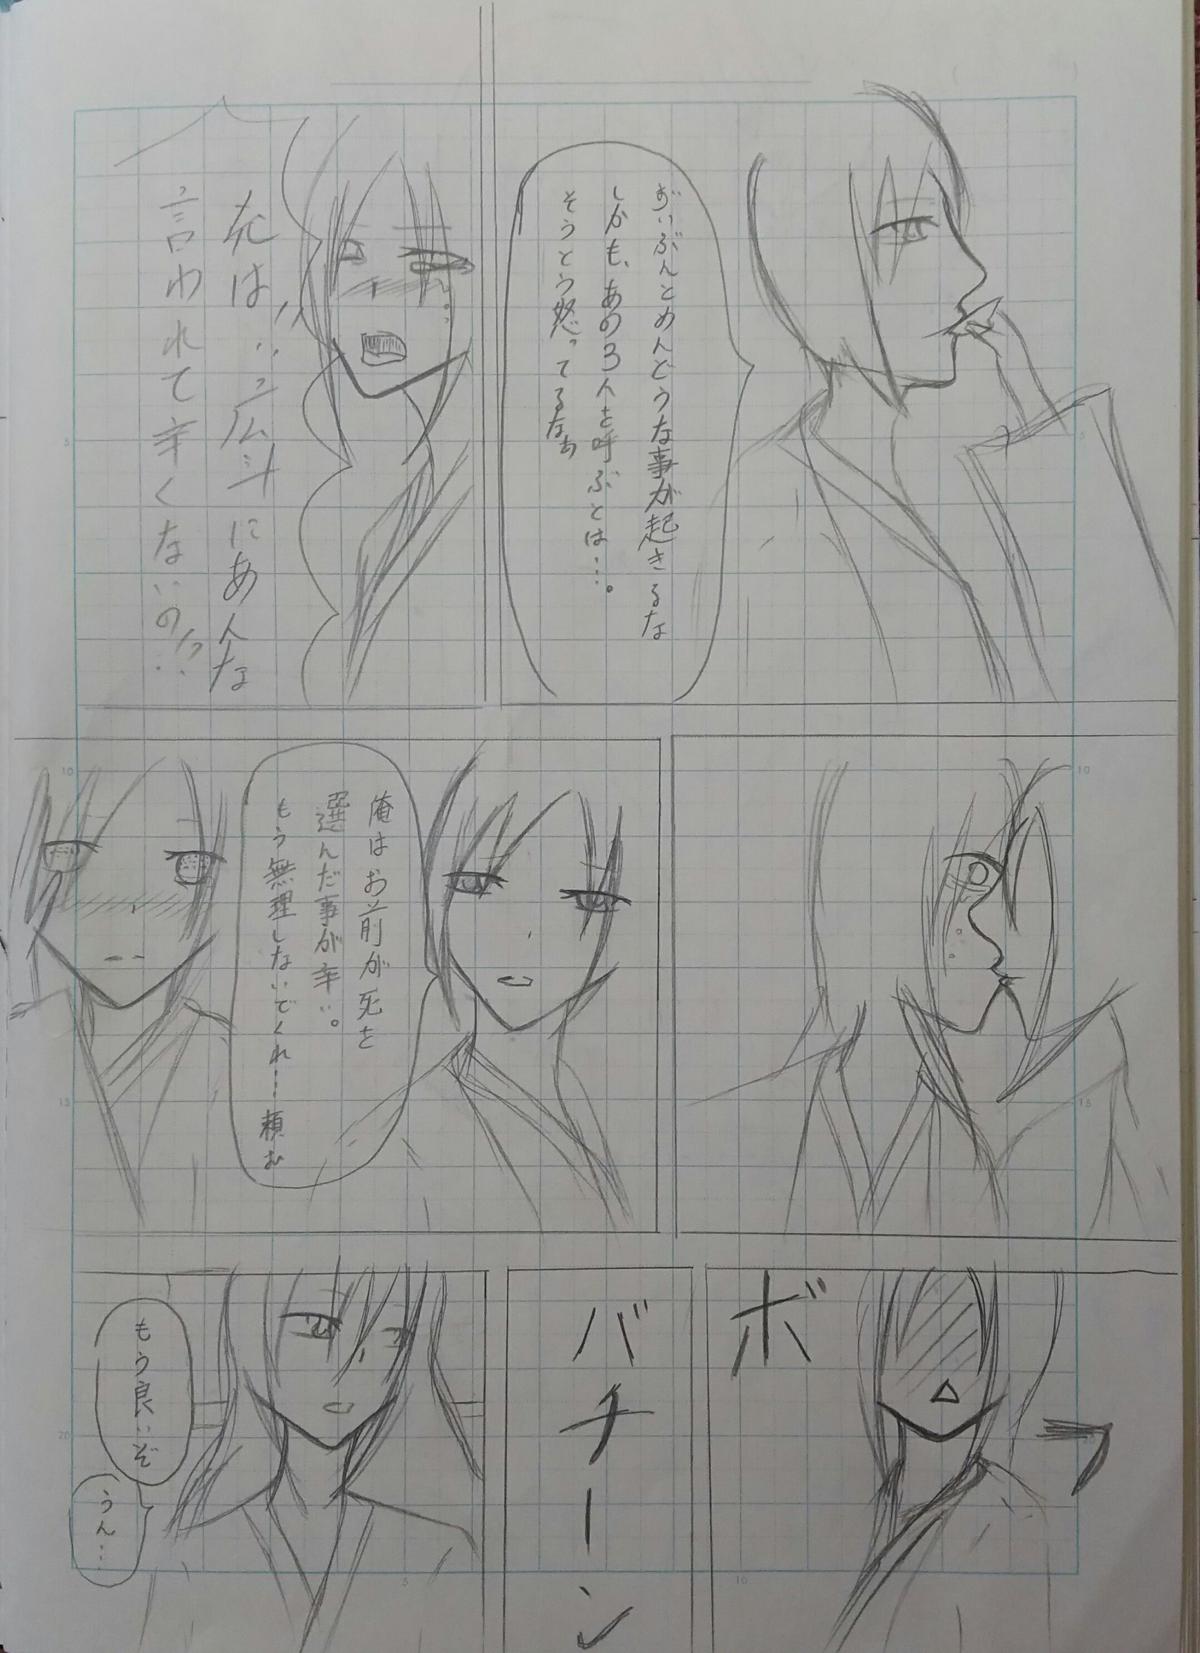 ずいぶんとめんどうな事が起きるな
しかも、あの3人を呼ぶとは…。
そうとう怒ってるなぁ
広斗にあんな
言われて辛くないの!?
俺はお前が死を
選んだ事が辛い。
もう無理しないでくれ…頼む
ボ
フ
バチーン
もう良いぞ
うん…
5
10
10
15
15
20
5
10